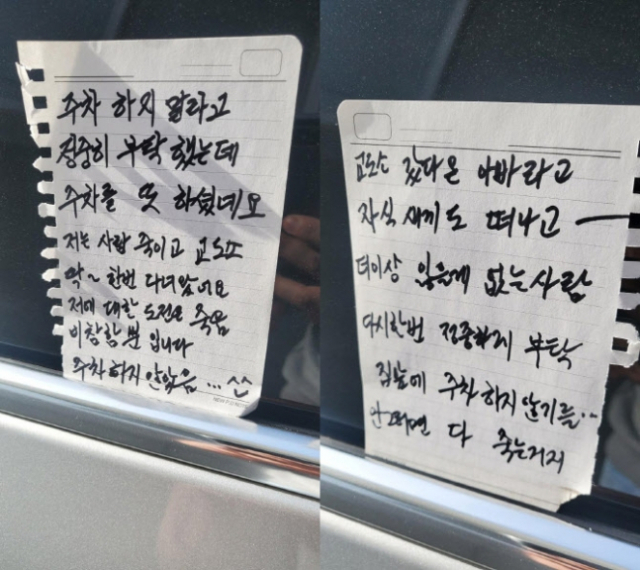 주차 하지 말라고
정중히 부탁 했는데
주차를 또 하셨네요
저는 사람 죽이고 교도소
딱~ 한번 다녀왔어요
저에 대한 도전은 죽음
비참할 뿐 입니다
주차하지 않았음... ^^
교도소 갔다 온 아빠라고
자식 새끼도 떠나고 —
더이상 잃을게 없는 사람
다시한번 정중하게 부탁
집앞에 주차 하지 않기를..
안그러면 다 죽는거지